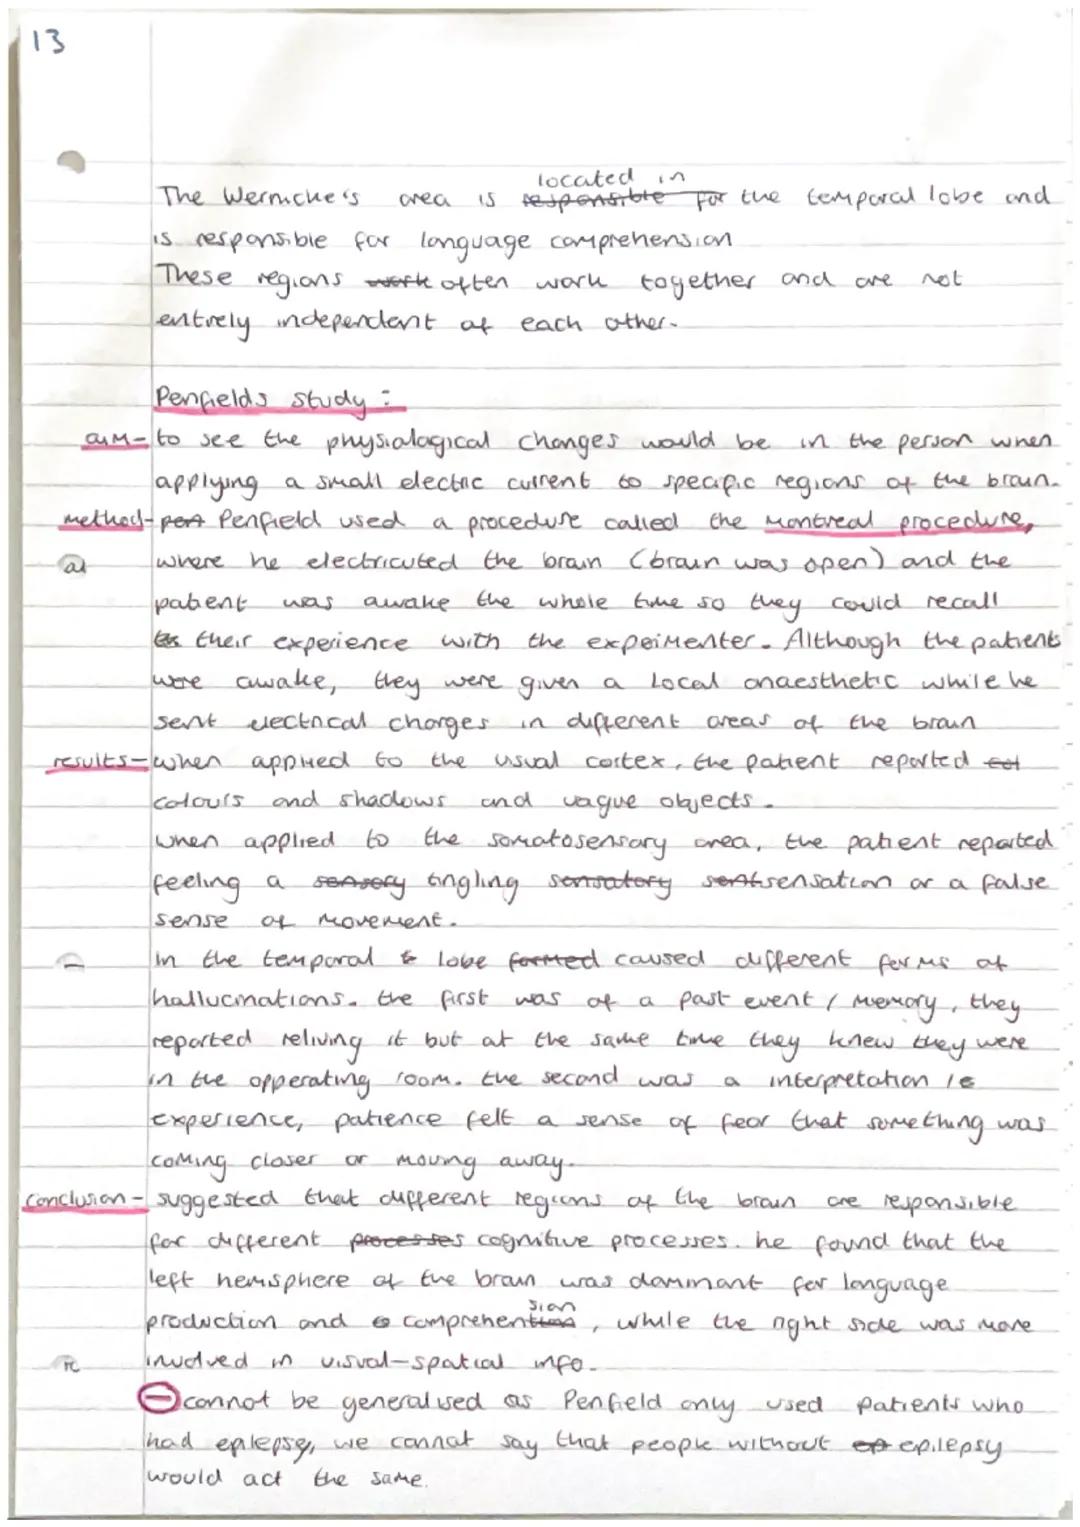 13
located in
The Wernicke's area is responsible for the temporal lobe and
is responsible for language comprehension
These regions work often work together and are not
entirely independent of each other.
Penfields study :
aim- to see the physialogical changes would be in the person when
applying a small electric current to specific regions of the brain.
method- pen Penfield used a procedure called the Montreal procedure,
where he electricuted the brain (brain was open) and the
patient was awake the whole time so they could recall
their experience with the expeimenter. Although the patients
were awake, they were given a local anaesthetic while he
sent electrical charges in different areas of the brain
results- when applied to the visual cortex, the patient reported col
colours and shadows and vague objects.
when applied to the somatosensory area, the patient reported
feeling a sensory tingling sensatory sent sensation or a false
sense of movement.
in the temporal lobe formed caused different forms of
hallucinations. the first was of a past event / memory, they
reported reliving it but at the same time they knew they were
in the opperating room. the second was a interpretation ie
experience, patience felt a sense of fear that something was
coming closer or moving away.
conclusion - suggested that different regions of the brain are responsible
for different processes cognitive processes. he found that the
left hemsphere of the brain was dominant for language
sion
production and comprehention, while the right side was more
involved in visual-spatial info.
⊖ cannot be generalised as Penfield only used patients who
had epilepsy, we cannot say that people without ep epilepsy
would act the same.